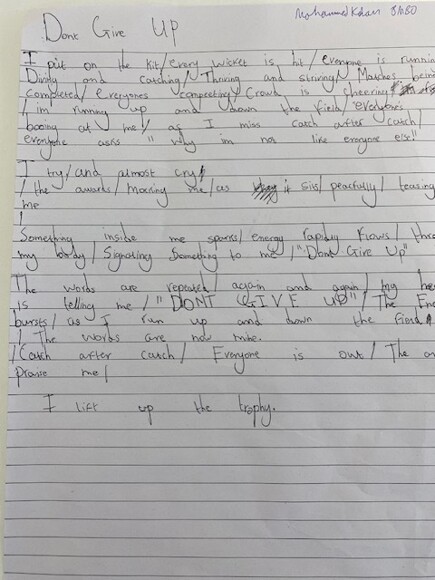 Mohammed Khan 8h80
Dont Give UP
I put on the kit/every wicket is hit/ everyone is runnin
Diving and catching/ Thriving and striving/ Matches bein
completed/ everyones competeting/ Crowd is cheering/
/ im running up and down the field/ everyones
booing at me/ as I miss catch after catch/
everyone asks "why im not like everyone else"
I try/ and almost cry/
/ the awards/ mocking me/as it sits/ peacfully/ teasing
me
/
Something inside me sparks/ energy rapidly flows/ thro
my body/ Signaling Something to me /"Dont Give Up"
The words are repeated/ again and again/ my hea
is telling me/ "DONT GIVE UP"/ The Ene
bursts/ as I run up and down the field
/ The words are now mine.
/Catch after catch/ Everyone is out/ The
Praise me/
I lift up the trophy.